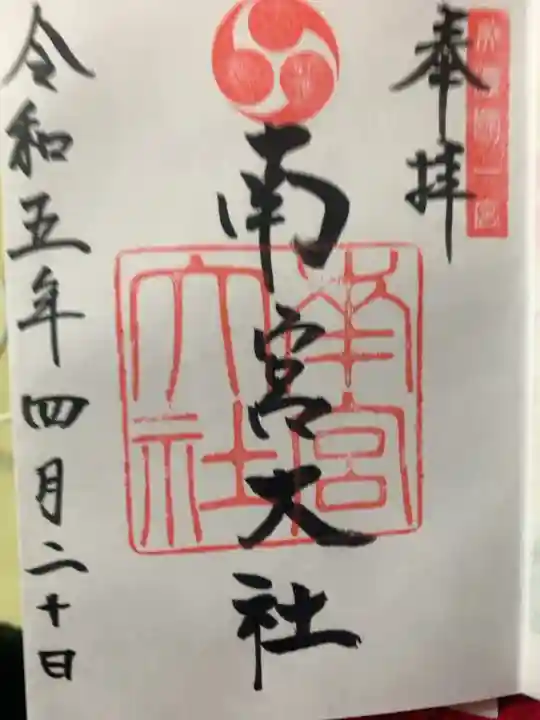 奉拝
南宮大社
南宮大社
令和五年四月二十日